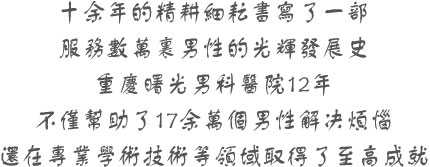 十余年的精耕細耘書寫了一部
服務數萬裏男性的光輝發展史
重慶曙光男科醫院12年
不僅幫助了17余萬個男性解决煩惱
還在專業學術技術等領域取得了至高成就